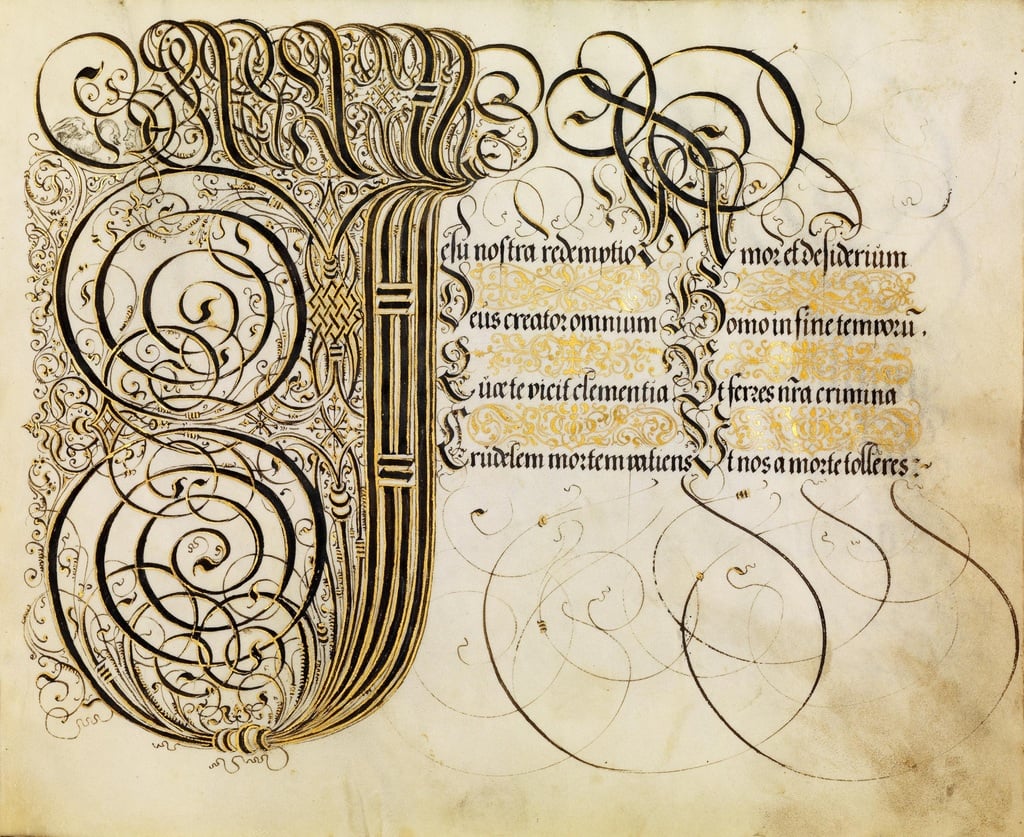 Jesu nostra redemptio Amor et desiderium
Deus creator omnium Homo in fine temporū.
Quæ te vicit clementia Ut ferres nr̃a crimina
Crudelem mortem patiens Ut nos a morte tolleres :~